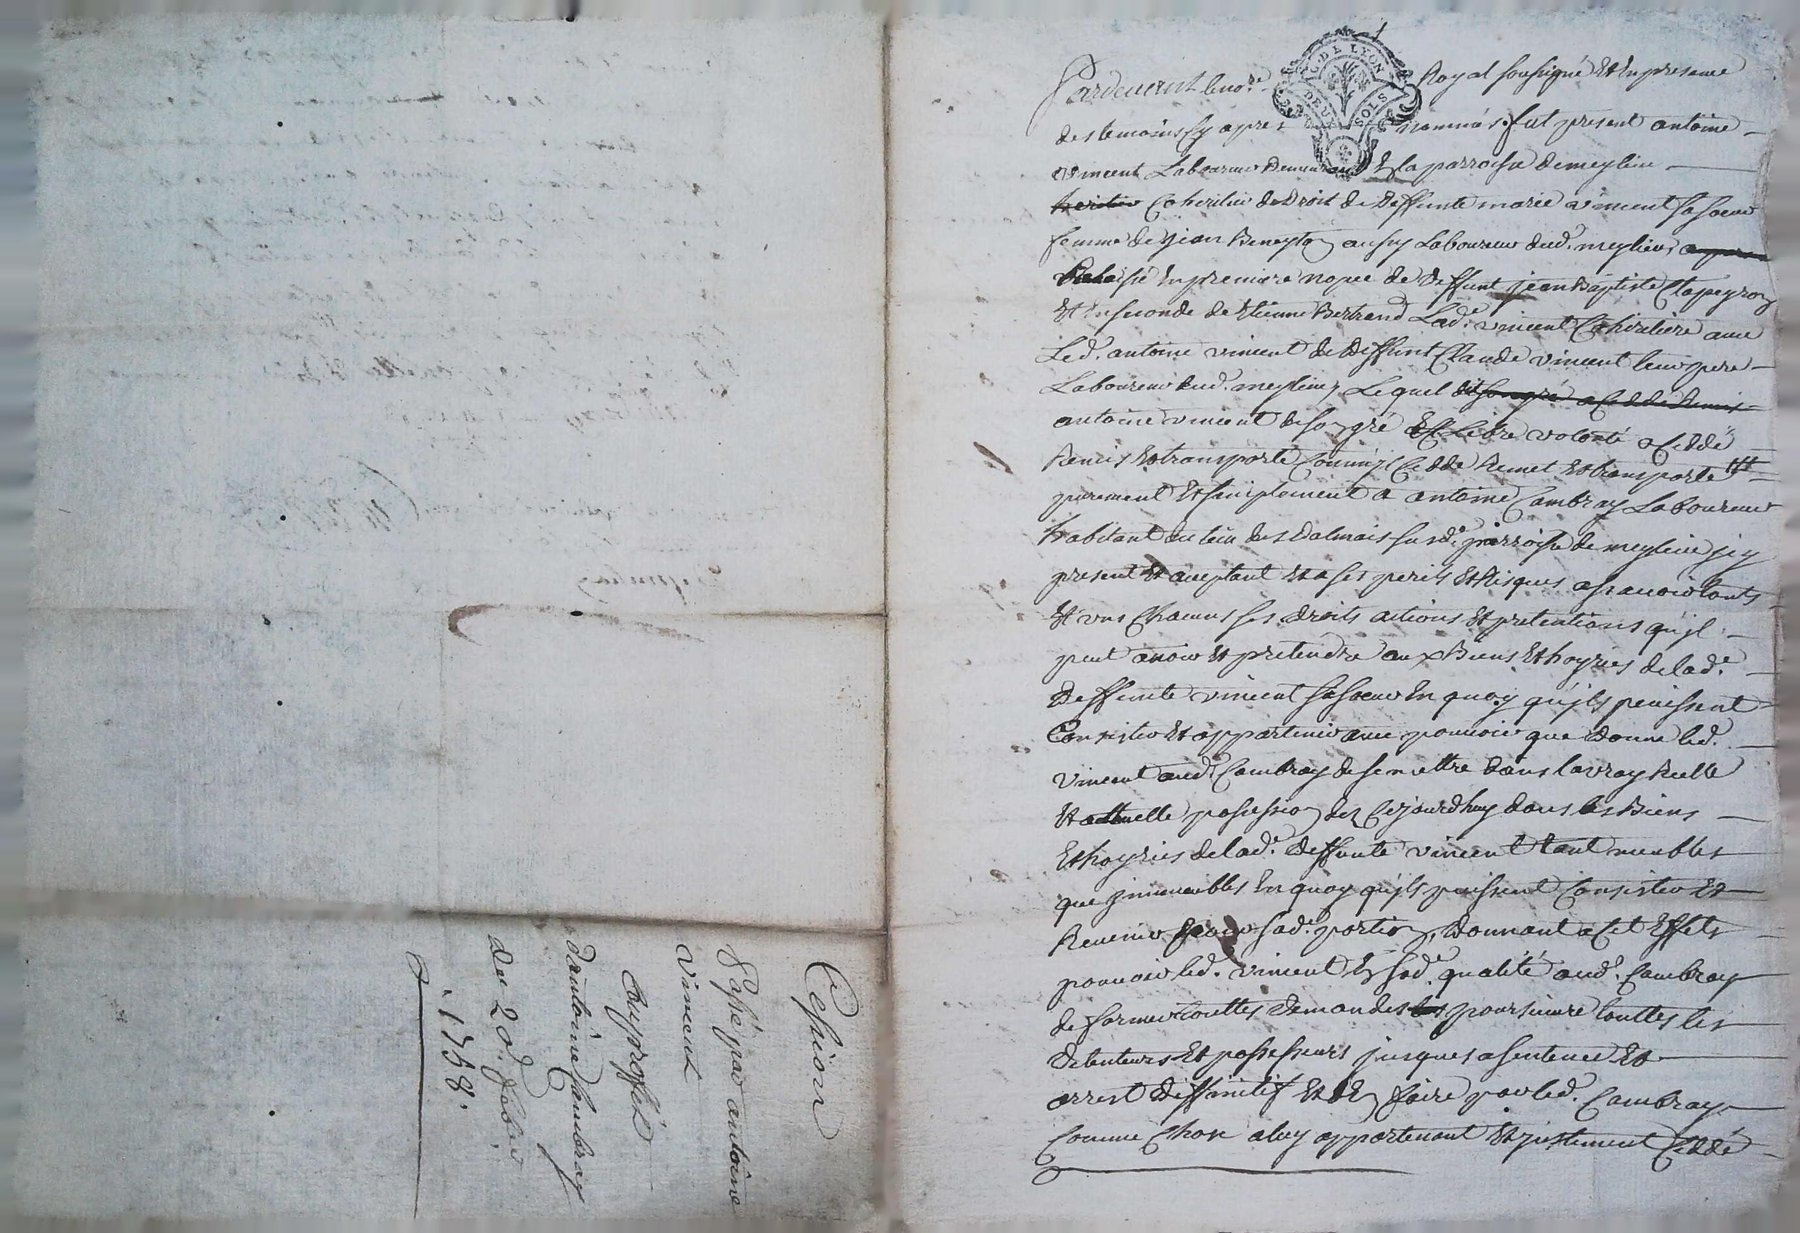 Cession
Passé par antoine
vincent
au proffit
d'antoine Cambray
du 20e. febvr.
1758.
G. DE LYON
DEUX SOLS
Pardevant le no.re Royal soussigné Et En presence
des temoins Cy apres nommés. fut present antoine
vincent Laboureur Demeurant En la parroisse de meylieu
heritier Coheritier de Droit de Deffunte marie vincent sa soeur
femme de jean Beneyton aussy Laboureur dud. meylieu,
En premiere nopce de Deffunt jean Baptiste Clapeyron
Et En seconde de Etienne Bertrand Lad.e vincent Coheritiere avec
Led. antoine vincent de Deffunt Claude vincent leur pere
Laboureur dud. meylieu, Lequel dit son gré a Ceddé Remis
antoine vincent de son gré Et Libre volonté a Ceddé
Remis Et transporté Comm'jl Cedde Remet Et transporte
purement Et simplement a antoine Cambray Laboureur
habitant du lieu des Dalmais susd.e parroisse de meylieu jcy
present Et aceptant Et a ses perils Et Risques a scavoir touts
Et vns Chacuns ses droits actions Et pretentions qu'jl
peut avoir Et pretendre aux Biens Et hoyries de lad.e
Deffunte vincent sa soeur En quoy qu'jls peuissent
Consister Et appartenir avec pouvoir que donne led.
vincent aud. Cambray de se mettre dans la vray Reelle
Et actuelle possession des Cejourdhuy dans les Biens
Et hoyries de lad.e deffunte vincent tant meubles
que jmmeubles En quoy qu'jls puissent Consister Et
Revenir pour sad.e portion, Donnant a Cet Effets
pouvoir led. vincent En sad.e qualité aud. Cambray
de former touttes demandes poursuivre touttes les
Detenteurs Et possesseurs jusques a sentence Et
arrest Deffinitif Et En faire par led. Cambray
Comme Chose a luy appartenant Et justement Ceddé